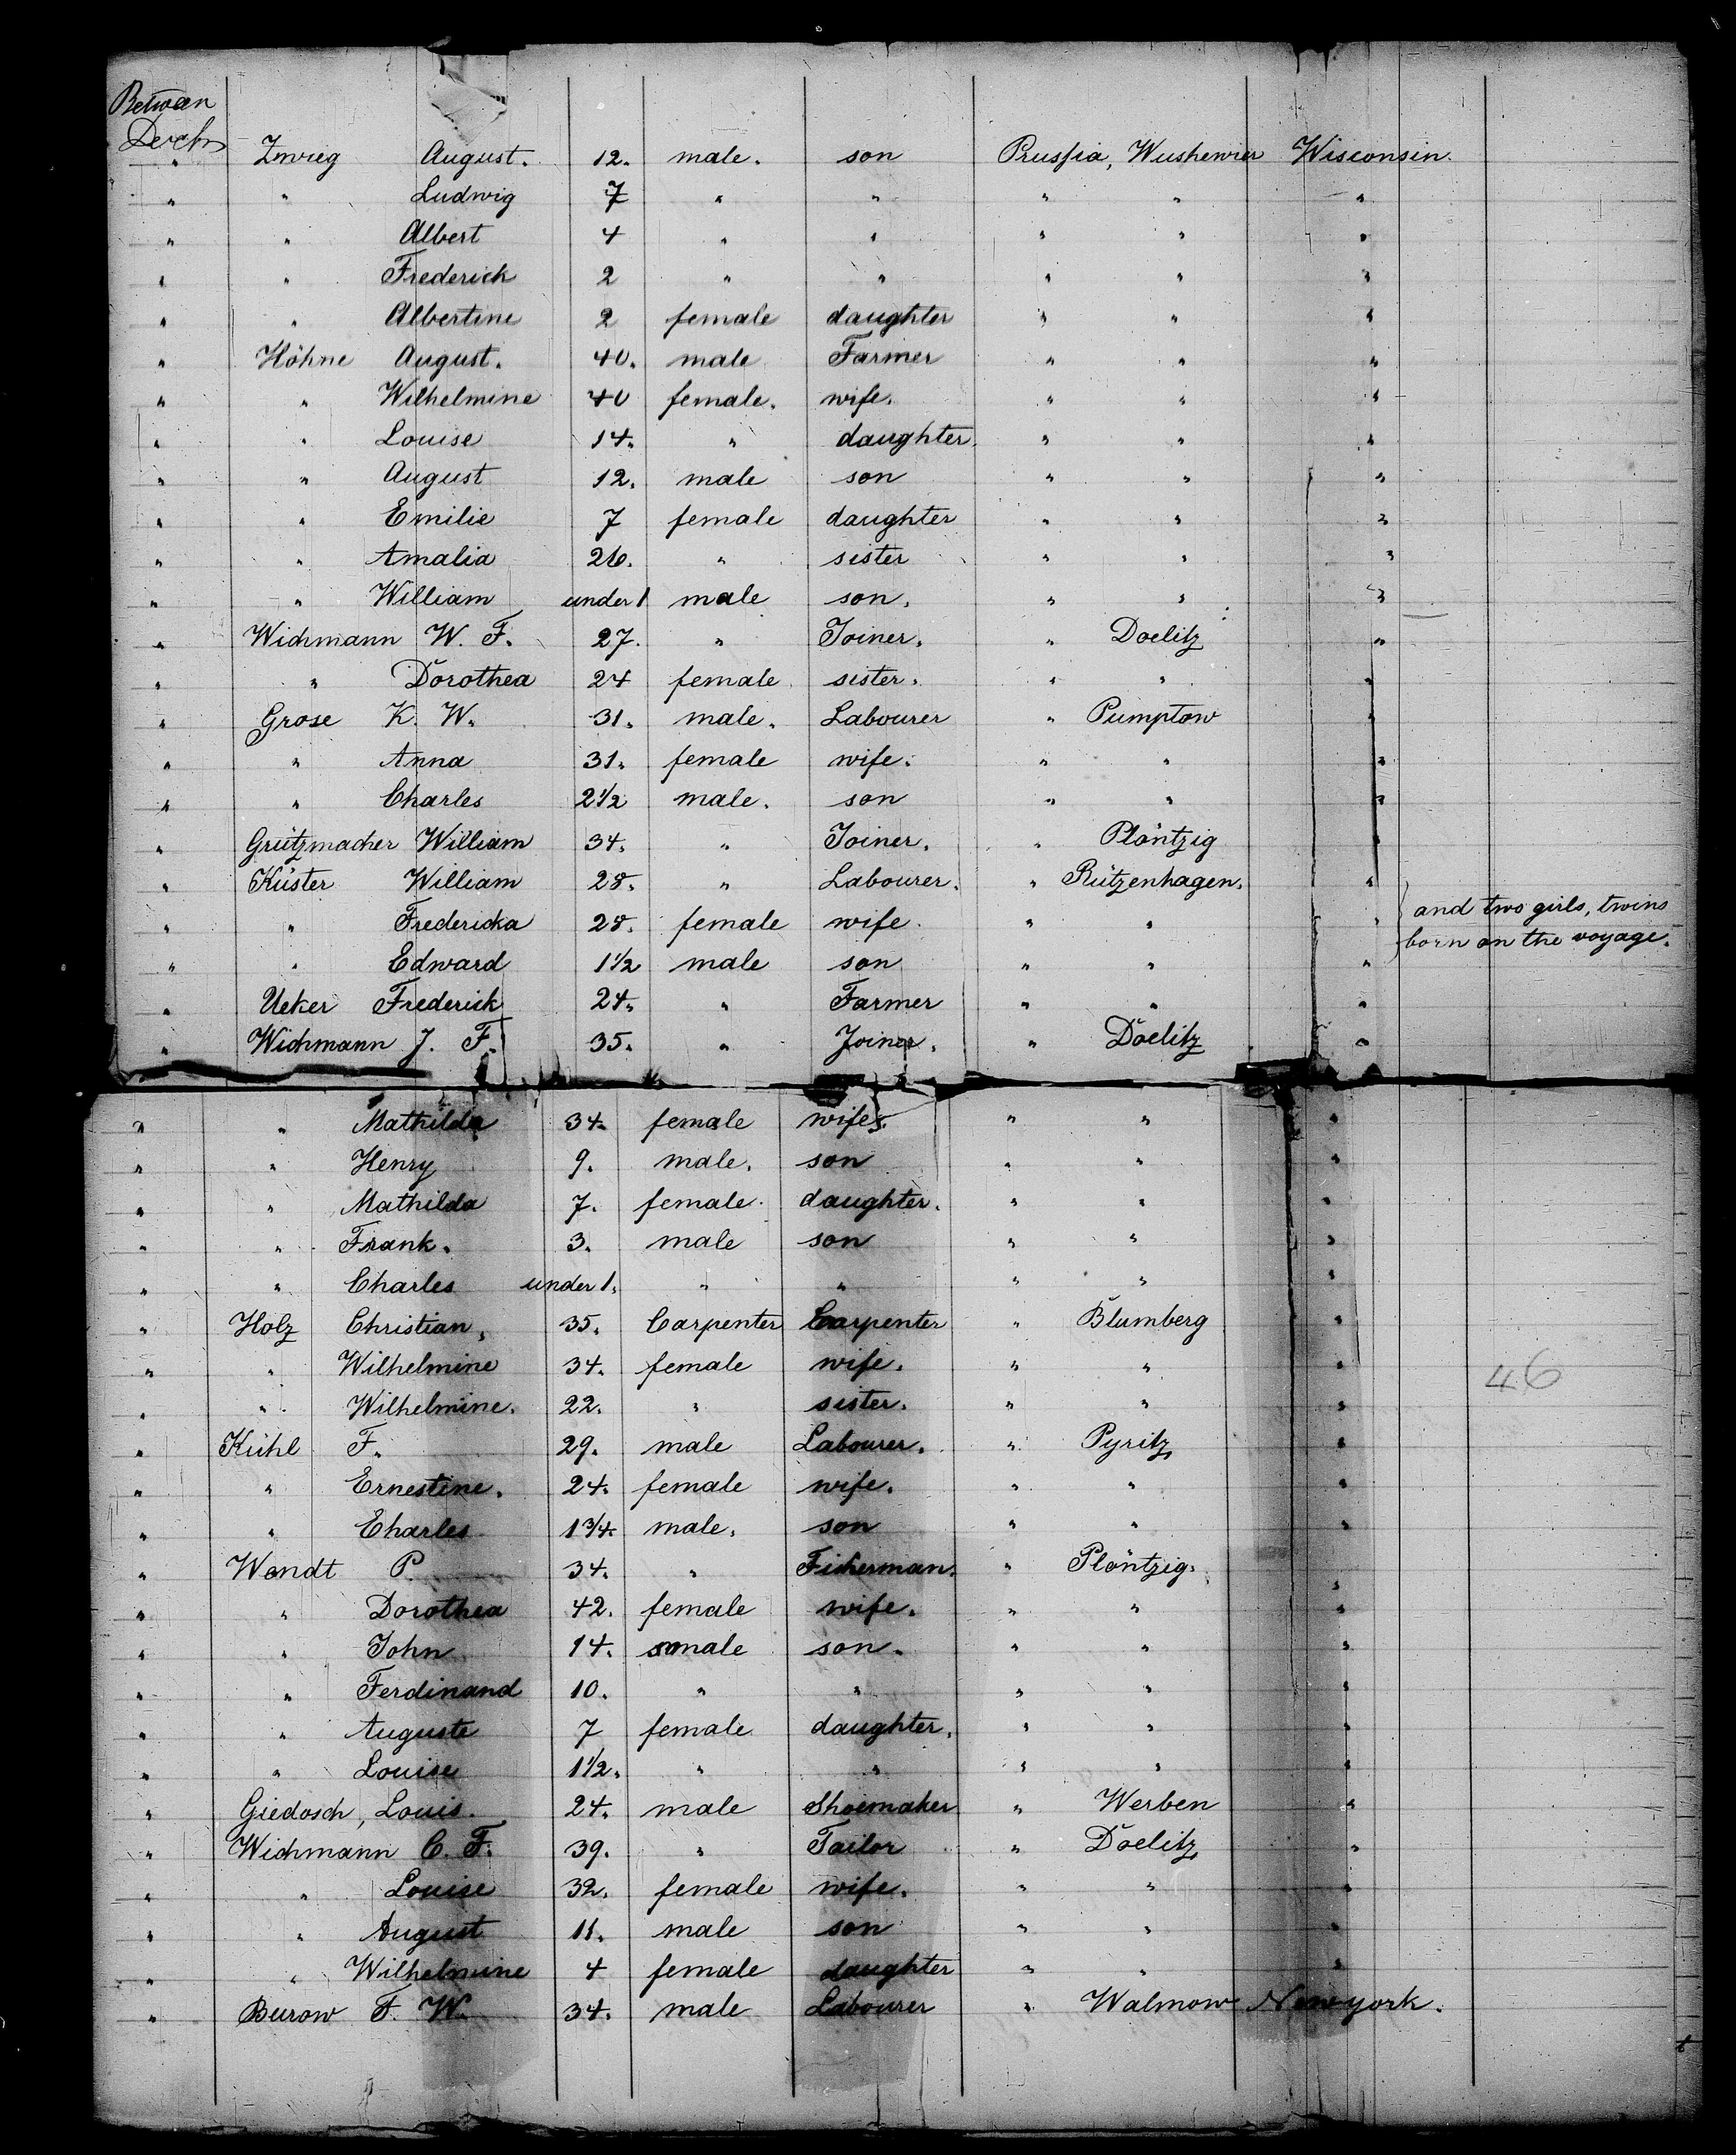 Between
Deck
" Zwieg August. 12. male. son Prussia, Wushewier Wisconsin.
" " Ludwig 7 " " " " "
" " Albert 4 " " " " "
" " Frederick 2 " " " " "
" " Albertine 2 female daughter " " "
" Höhne August. 40. male Farmer " " "
" " Wilhelmine 40 female. wife. " " "
" " Louise 14. " daughter. " " "
" " August 12. male son " " "
" " Emilie 7 female daughter " " "
" " Amalia 26. " sister " " "
" " William under 1 male son. " " "
" Wichmann W. F. 27. " Joiner. " Doelitz "
" " Dorothea 24 female sister. " " "
" Grose K. W. 31. male. Labourer " Pumptow "
" " Anna 31. female wife. " " "
" " Charles 2 1/2 male. son " " "
" Grützmacher William 34. " Joiner. " Plöntzig "
" Küster William 28. " Labourer. " Rützenhagen. "
" " Fredericka 28. female wife. " " " and two girls, twins
" " Edward 1 1/2 male son " " " born on the voyage.
" Ueker Frederick 24. " Farmer " " "
" Wichmann J. F. 35. " Joiner. " Doelitz "
" " Mathilda 34. female wife. " " "
" " Henry 9. male. son " " "
" " Mathilda 7. female. daughter. " " "
" " Frank. 3. male son " " "
" " Charles under 1. " " " " "
" Holz Christian, 35. Carpenter Carpenter " Blumberg "
" " Wilhelmine 34. female wife. " " "
" " Wilhelmine. 22. " sister. " " "
" Kühl F. 29. male Labourer. " Pyritz "
" " Ernestine. 24. female wife. " " "
" " Charles 1 3/4. male. son " " "
" Wendt P. 34. " Ficherman. " Plöntzig. "
" " Dorothea 42. female wife. " " "
" " John 14. male son. " " "
" " Ferdinand 10. " " " " "
" " Auguste 7 female daughter. " " "
" " Louise 1 1/2. " " " " "
" Giedosch, Louis. 24. male Shoemaker " Werben "
" Wichmann C. F. 39. " Tailor " Doelitz "
" " Louise 32. female wife. " " "
" " August 11. male son " " "
" " Wilhelmine 4 female daughter " " "
" Burow F. W. 34. male Labourer " Walmow Newyork.
46